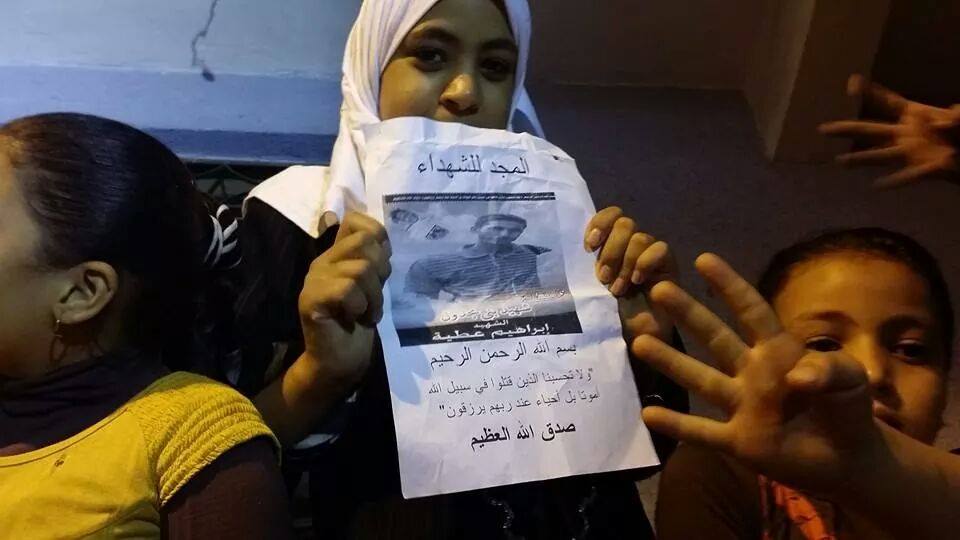 المجد للشهداء
شهيد بني جرون
الشهيد
إبراهيم عطية
بسم الله الرحمن الرحيم
"ولا تحسبنا الذين قتلوا في سبيل الله
أموتا بل أحياء عند ربهم يرزقون"
صدق الله العظيم